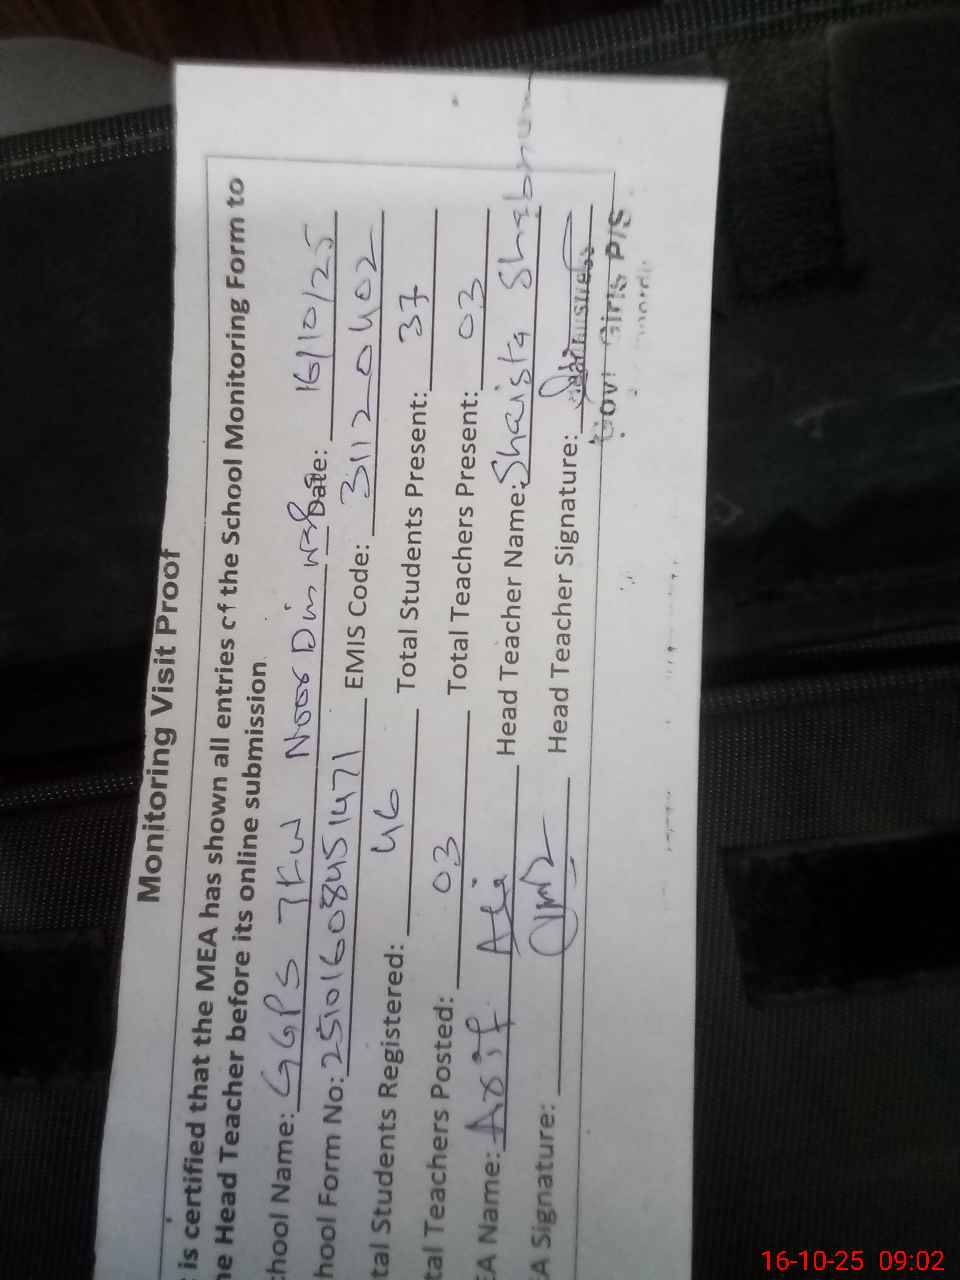 Monitoring Visit Proof
is certified that the MEA has shown all entries of the School Monitoring Form to
he Head Teacher before its online submission
chool Name: GGPS 7FW Noor Din wah Date: 16/10/25
hool Form No: 251016084851471 EMIS Code: 31120402
tal Students Registered: 46 Total Students Present: 37
tal Teachers Posted: 03 Total Teachers Present: 03
EA Name: Asif Head Teacher Name: Shaista Shabnum
A Signature: Head Teacher Signature:
Govt Girls P/S
16-10-25 09:02